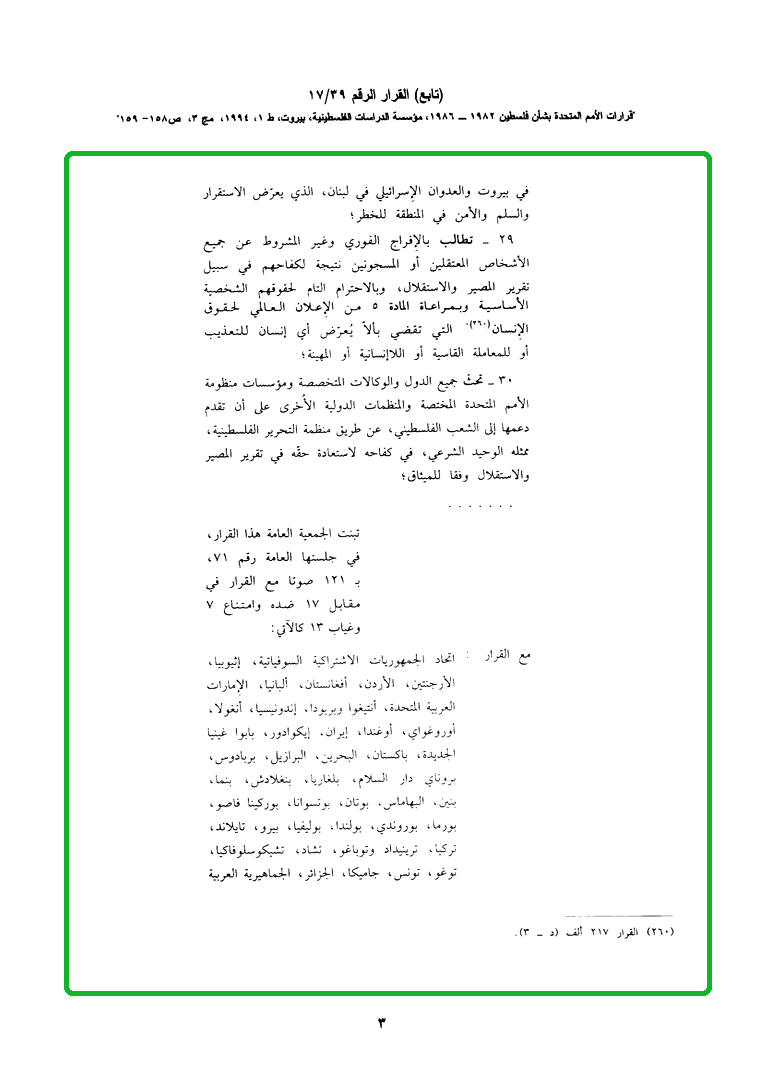 (تابع) القرار الرقم ١٧/٣٩
"قرارات الأمم المتحدة بشأن فلسطين ١٩٨٢ ــ ١٩٨٦، مؤسسة الدراسات الفلسطينية، بيروت، ط ١، ١٩٩٤، مج ٣، ص١٥٨- ١٥٩"
في بيروت والعدوان الإسرائيلي في لبنان، الذي يعرّض الاستقرار
والسلم والأمن في المنطقة للخطر؛
٢٩ ـ تطالب بالإفراج الفوري وغير المشروط عن جميع
الأشخاص المعتقلين أو المسجونين نتيجة لكفاحهم في سبيل
تقرير المصير والاستقلال، وبالاحترام التام لحقوقهم الشخصية
الأساسية وبمراعاة المادة ٥ من الإعلان العالمي لحقوق
الإنسان(٢٦٠)، التي تقضي بألاّ يُعرّض أي إنسان للتعذيب
أو للمعاملة القاسية أو اللاإنسانية أو المهينة؛
٣٠ ـ تحثّ جميع الدول والوكالات المتخصصة ومؤسسات منظومة
الأمم المتحدة المختصة والمنظمات الدولية الأُخرى على أن تقدم
دعمها إلى الشعب الفلسطيني، عن طريق منظمة التحرير الفلسطينية،
ممثله الوحيد الشرعي، في كفاحه لاستعادة حقّه في تقرير المصير
والاستقلال وفقا للميثاق؛
. . . . . . .
تبنت الجمعية العامة هذا القرار،
في جلستها العامة رقم ٧١،
بـ ١٢١ صوتا مع القرار في
مقابل ١٧ ضده وامتناع ٧
وغياب ١٣ كالآتي:
مع القرار : اتحاد الجمهوريات الاشتراكية السوفياتية، إثيوبيا،
الأرجنتين، الأردن، أفغانستان، ألبانيا، الإمارات
العربية المتحدة، أنتيغوا وبربودا، إندونيسيا، أنغولا،
أوروغواي، أوغندا، إيران، إيكوادور، بابوا غينيا
الجديدة، باكستان، البحرين، البرازيل، بربادوس،
بروناي دار السلام، بلغاريا، بنغلادش، بنما،
بنين، البهاماس، بوتان، بوتسوانا، بوركينا فاصو،
بورما، بوروندي، بولندا، بوليفيا، بيرو، تايلاند،
تركيا، ترينيداد وتوباغو، تشاد، تشيكوسلوفاكيا،
توغو، تونس، جاميكا، الجزائر، الجماهيرية العربية
(٢٦٠) القرار ٢١٧ ألف (د ـ ٣).
٣